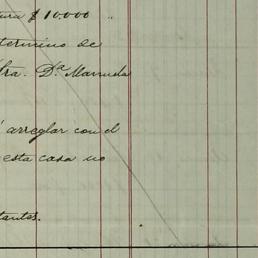 tura $ 10.000 "
termino de
tra. D.ª Manuela
arreglar con el
esta casa no
tantes.